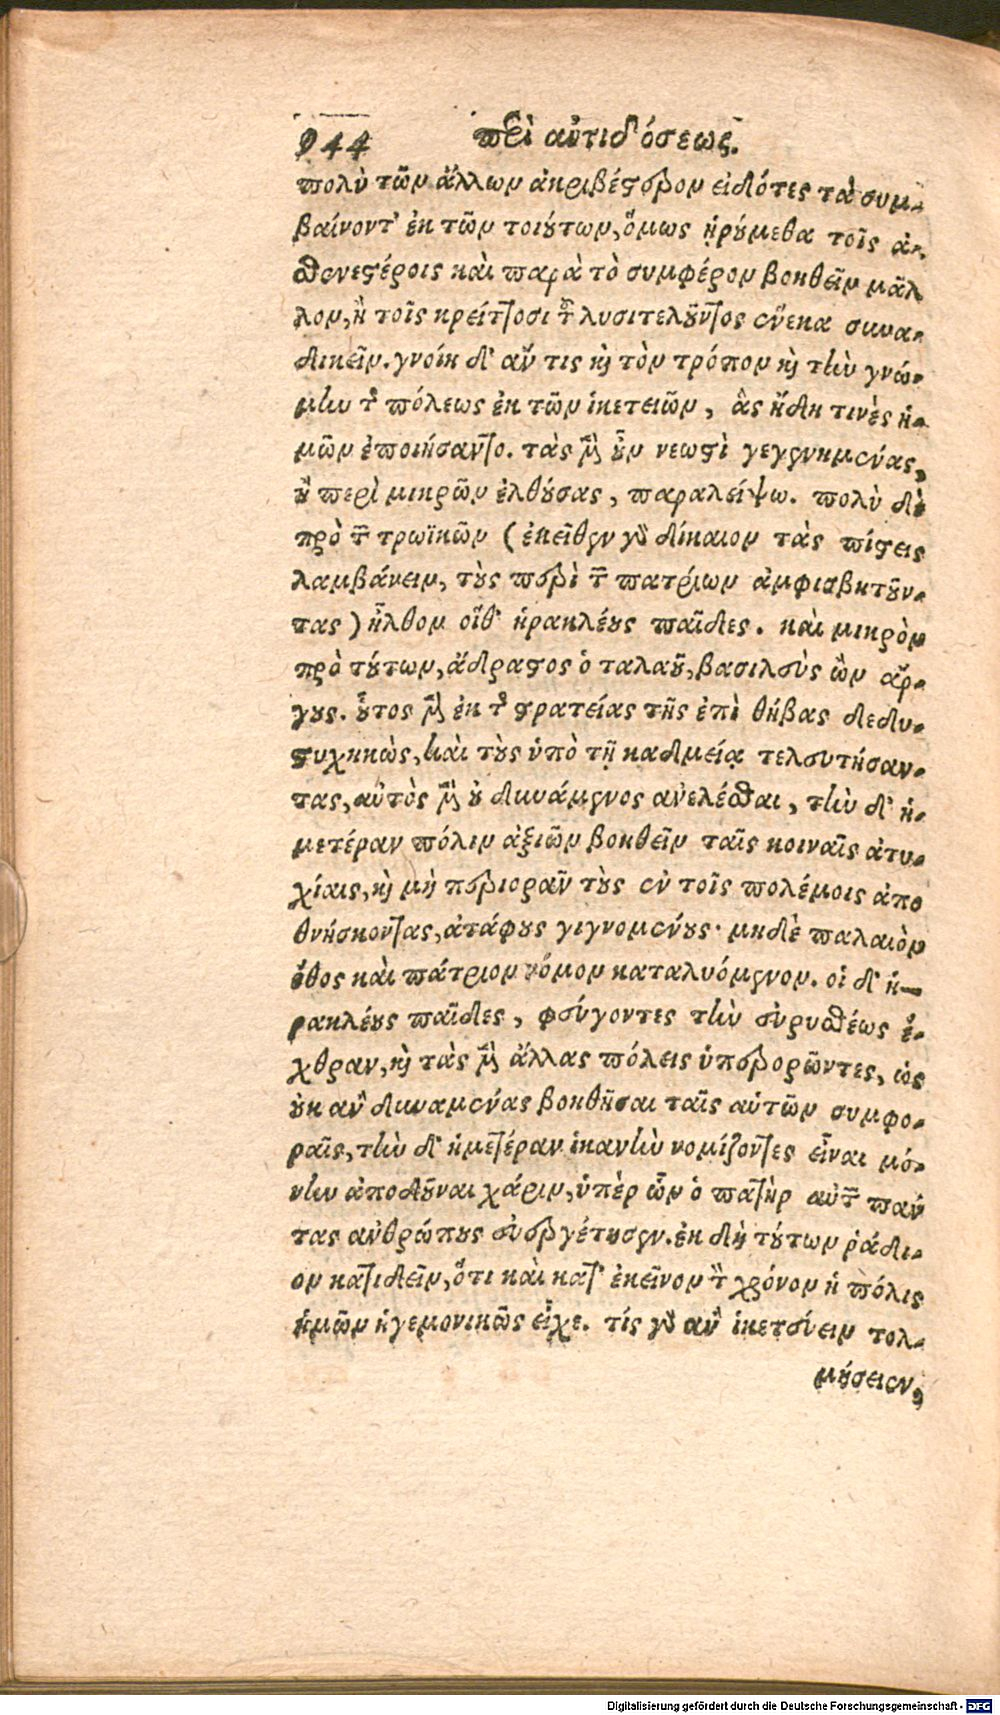 944 περὶ ἀντιδόσεως.
πολὺ τῶν ἄλλων ἀκριβέστερον εἰδότες τὰ συμ-
βαίνοντ' ἐκ τῶν τοιούτων, ὅμως ᾑρούμεθα τοῖς ἀ-
σθενεστέροις καὶ παρὰ τὸ συμφέρον βοηθεῖν μᾶλ
λον, ἢ τοῖς κρείττοσι τοῦ λυσιτελοῦντος ἕνεκα συνα-
δικεῖν. γνοίη δ' ἄν τις καὶ τὸν τρόπον καὶ τὴν γνώ-
μην τῆς πόλεως ἐκ τῶν ἱκετειῶν, ἃς ἤδη τινὲς ἡ-
μῶν ἐποιήσαντο. τὰς μὲν οὖν νεωστὶ γεγενημένας,
ἢ περὶ μικρῶν ἐλθούσας, παραλείψω. πολὺ δὲ
πρὸ τῶν τρωϊκῶν (ἐκεῖθεν γὰρ δίκαιον τὰς πίστεις
λαμβάνειν, τοὺς περὶ τῶν πατρίων ἀμφισβητοῦν-
τας) ἦλθον οἵθ' ἡρακλέους παῖδες. καὶ μικρὸν
πρὸ τούτων, ἄδραστος ὁ ταλαοῦ, βασιλεὺς ὢν ἄρ-
γους. οὗτος μὲν ἐκ τῆς στρατείας τῆς ἐπὶ θήβας δεδυ-
στυχηκὼς, καὶ τοὺς ὑπὸ τῇ καδμείᾳ τελευτήσαν-
τας, αὐτὸς μὲν οὐ δυνάμενος ἀνελέσθαι, τὴν δ' ἡ-
μετέραν πόλιν ἀξιῶν βοηθεῖν ταῖς κοιναῖς ἀτυ-
χίαις, καὶ μὴ περιορᾶν τοὺς ἐν τοῖς πολέμοις ἀπο
θνήσκοντας, ἀτάφους γιγνομένους· μηδὲ παλαιὸν
ἔθος καὶ πάτριον νόμον καταλυόμενον. οἱ δ' ἡ-
ρακλέους παῖδες, φεύγοντες τὴν εὐρυσθέως ἔ-
χθραν, καὶ τὰς μὲν ἄλλας πόλεις ὑπερορῶντες, ὡς
οὐκ ἂν δυναμένας βοηθῆσαι ταῖς αὑτῶν συμφο-
ραῖς, τὴν δ' ἡμετέραν ἱκανὴν νομίζοντες εἶναι μό-
νην ἀποδοῦναι χάριν, ὑπὲρ ὧν ὁ πατὴρ αὐτῶν πάν
τας ἀνθρώπους εὐεργέτησεν. ἐκ δὴ τούτων ῥάδι-
ον κατιδεῖν, ὅτι καὶ κατ' ἐκεῖνον τὸν χρόνον ἡ πόλις
ἡμῶν ἡγεμονικῶς εἶχε. τίς γὰρ ἂν ἱκετεύειν τολ-
μήσειεν,
Digitalisierung gefördert durch die Deutsche Forschungsgemeinschaft - DFG